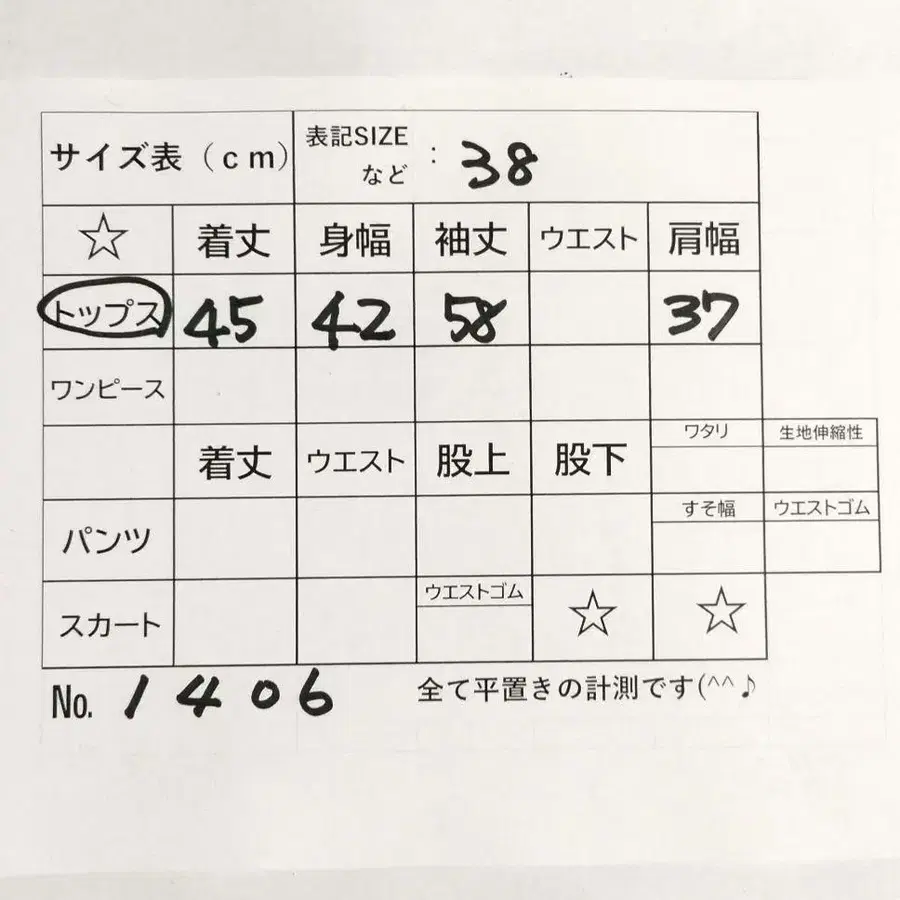 サイズ表（cm） 表記SIZE など : 38
☆ 着丈 身幅 袖丈 ウエスト 肩幅
トップス 45 42 58 37
ワンピース
着丈 ウエスト 股上 股下 ワタリ 生地伸縮性
パンツ すそ幅 ウエストゴム
スカート ウエストゴム ☆ ☆
No. 1406 全て平置きの計測です(^^♪